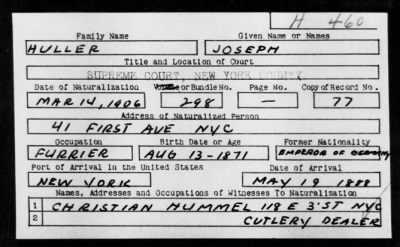 H 460
Family Name Given Name or Names
HULLER JOSEPH
Title and Location of Court
SUPREME COURT, NEW YORK COUNTY
Date of Naturalization Volume or Bundle No. Page No. Copy of Record No.
MAR 14, 1906 298 — 77
Address of Naturalized Person
41 FIRST AVE NYC
Occupation Birth Date or Age Former Nationality
FURRIER AUG 13-1871 EMPEROR OF GERMANY
Port of Arrival in the United States Date of Arrival
NEW YORK MAY 19 1888
Names, Addresses and Occupations of Witnesses To Naturalization
1 CHRISTIAN HUMMEL 118 E 3'ST NYC
2 CUTLERY DEALER